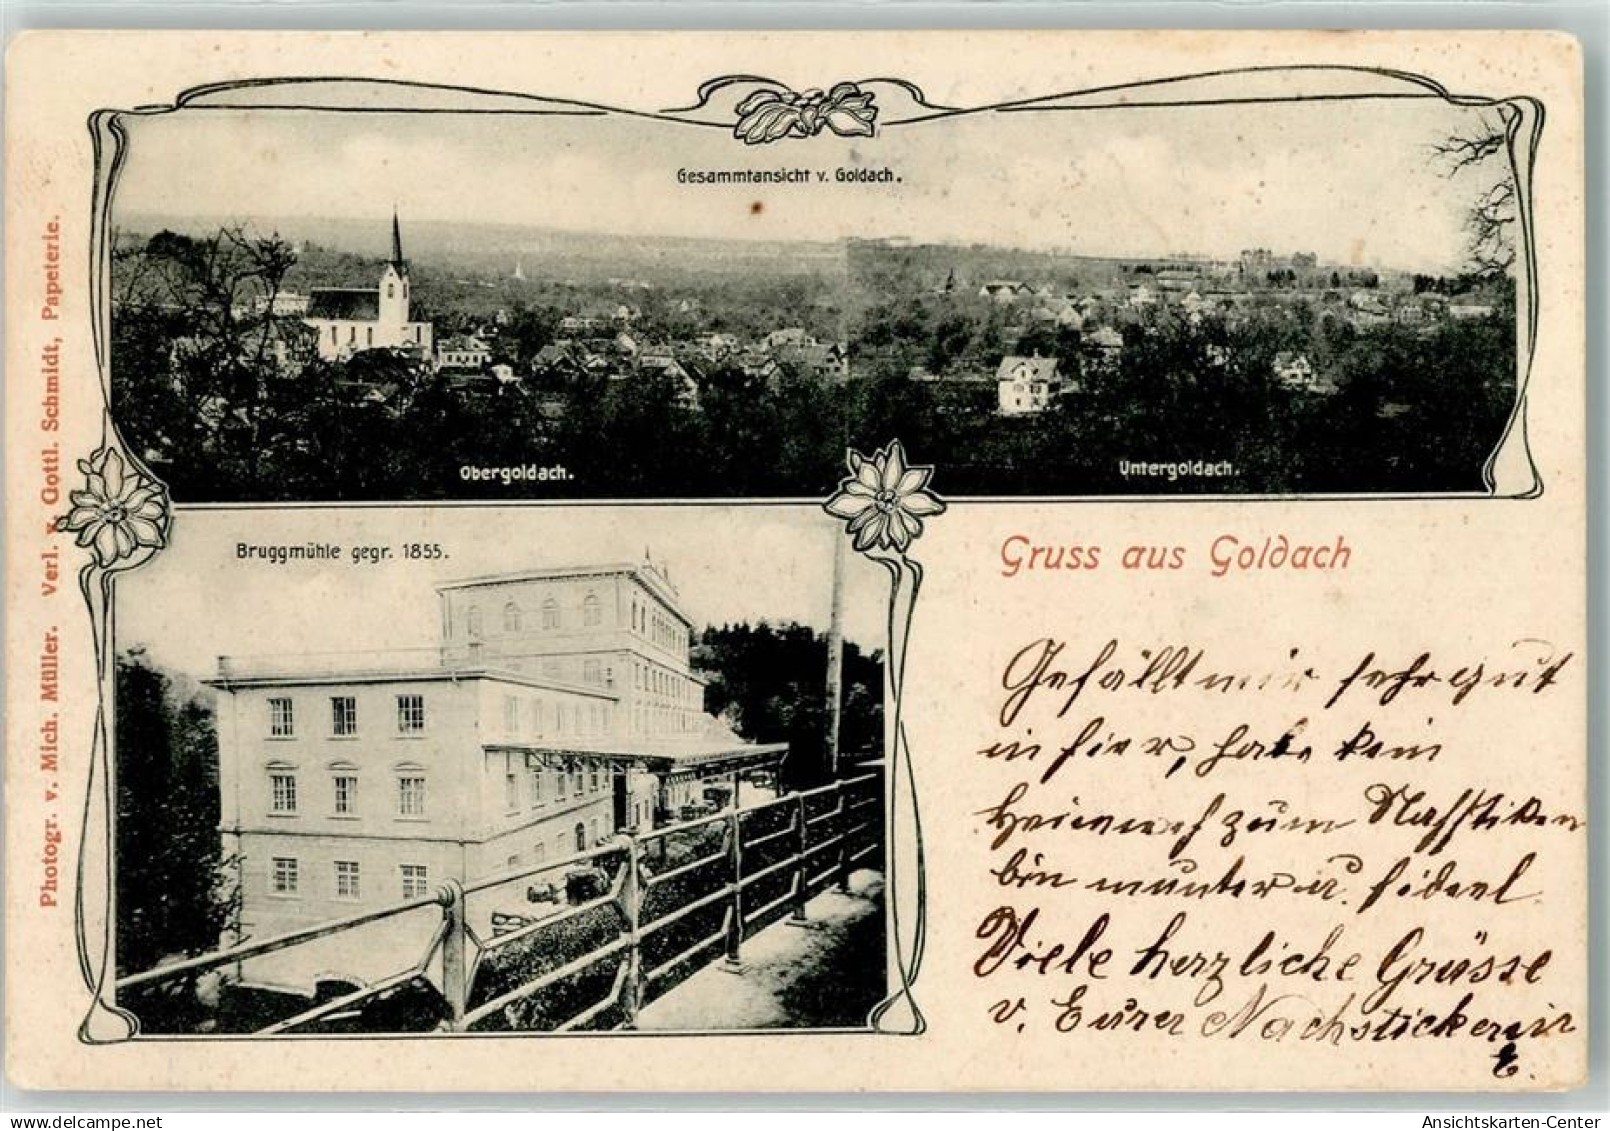 Gesammtansicht v. Goldach.
Obergoldach.
Untergoldach.
Bruggmühle gegr. 1855.
Photogr. v. Mich. Müller. Verl. v. Gottl. Schmidt, Papeterie.
Gruss aus Goldach
Gefällt mir sehr gut
in hier, habe kein
Heimweh zum Nachsticken
bin munter u. fideel
Viele herzliche Grüsse
v. Eurer Nachstickerin
E.
delcampe.net
Ansichtskarten-Center